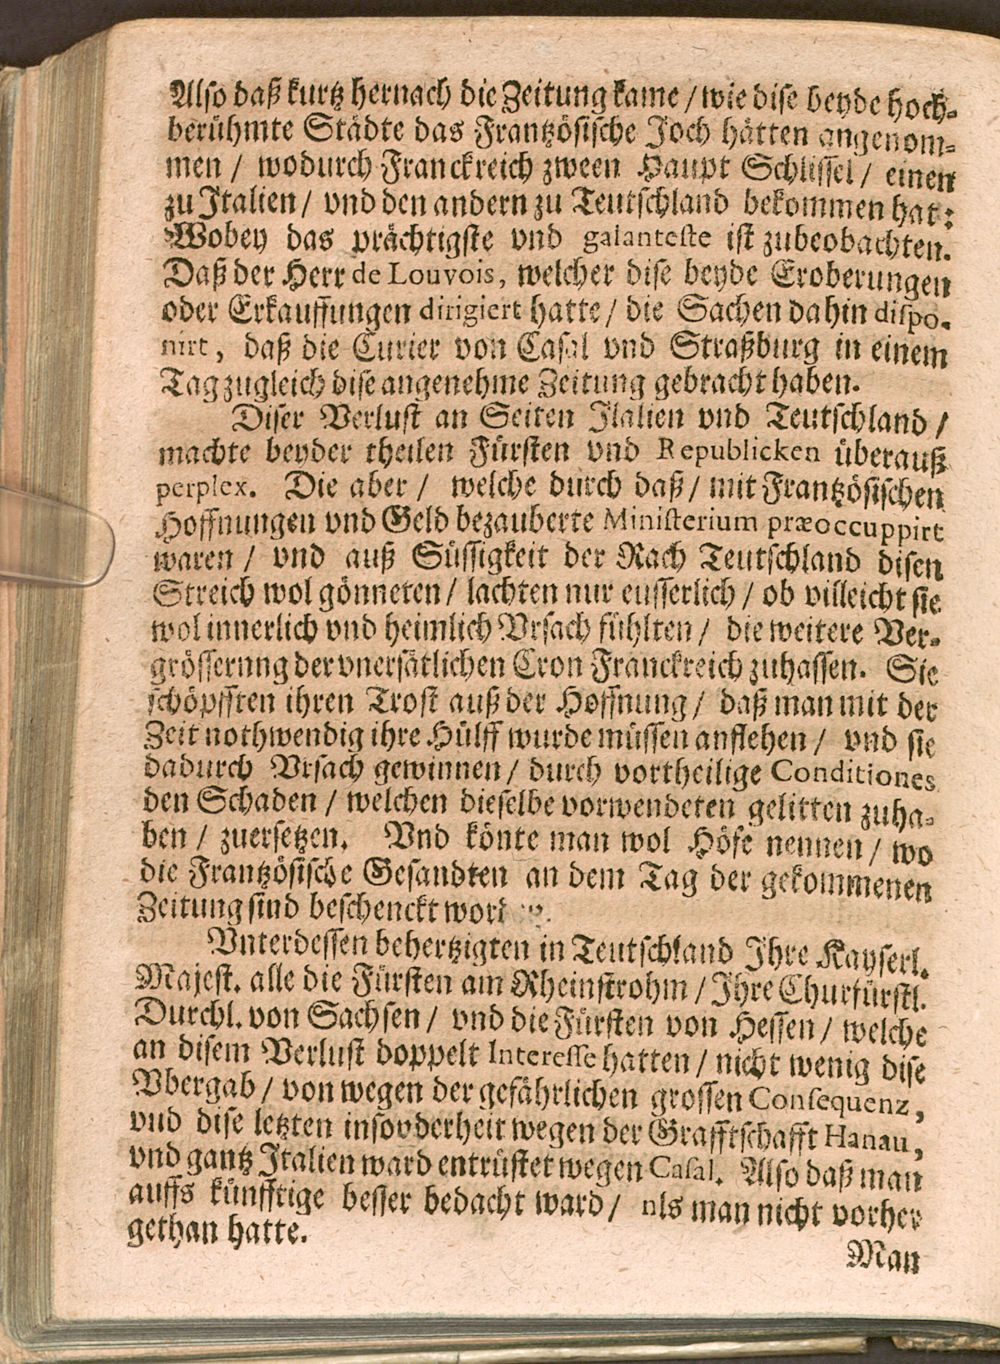 Also daß kurtz hernach die Zeitung kame / wie dise beyde hoch-
berühmte Städte das Frantzösische Joch hätten angenom-
men / wodurch Franckreich zween Haupt Schlissel / einen
zu Italien / vnd den andern zu Teutschland bekommen hat:
Wobey das prächtigste vnd galanteste ist zubeobachten.
Daß der Herr de Louvois, welcher dise beyde Eroberungen
oder Erkauffungen dirigiert hatte / die Sachen dahin dispo-
nirt, daß die Curier von Casal vnd Straßburg in einem
Tag zugleich dise angenehme Zeitung gebracht haben.
Diser Verlust an Seiten Italien vnd Teutschland /
machte beyder theilen Fürsten vnd Republicken überauß
perplex. Die aber / welche durch daß / mit Frantzösischen
Hoffnungen vnd Geld bezauberte Ministerium præoccuppirt
waren / vnd auß Süssigkeit der Rach Teutschland disen
Streich wol gönneten / lachten nur eusserlich / ob villeicht sie
wol innerlich vnd heimlich Vrsach fühlten / die weitere Ver-
grösserung der vnersätlichen Cron Franckreich zuhassen. Sie
schöpfften ihren Trost auß der Hoffnung / daß man mit der
Zeit nothwendig ihre Hülff wurde müssen anflehen / vnd sie
dadurch Vrsach gewinnen / durch vortheilige Conditiones
den Schaden / welchen dieselbe vorwendeten gelitten zuha-
ben / zuersetzen. Vnd könte man wol Höfe nennen / wo
die Frantzösische Gesandten an dem Tag der gekommenen
Zeitung sind beschenckt worden.
Vnterdessen behertzigten in Teutschland Ihre Kayserl.
Majest. alle die Fürsten am Rheinstrohm / Ihre Churfürstl.
Durchl. von Sachsen / vnd die Fürsten von Hessen / welche
an disem Verlust doppelt Interesse hatten / nicht wenig dise
Vbergab / von wegen der gefährlichen grossen Consequenz,
vnd dise letzten insonderheit wegen der Grafftschafft Hanau,
vnd gantz Italien ward entrüstet wegen Casal. Also daß man
auffs künfftige besser bedacht ward / als man nicht vorher
gethan hatte.
Man